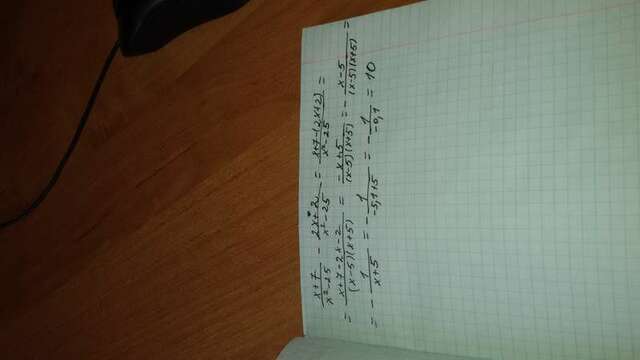 (x+7)/(x²-25) - (2x+2)/(x²-25) = (x+7-(2x+2))/(x²-25) =
= (x+7-2x-2)/((x-5)(x+5)) = (-x+5)/((x-5)(x+5)) = - (x-5)/((x-5)(x+5)) =
= - 1/(x+5) = - 1/(-5,1+5) = - 1/(-0,1) = 10